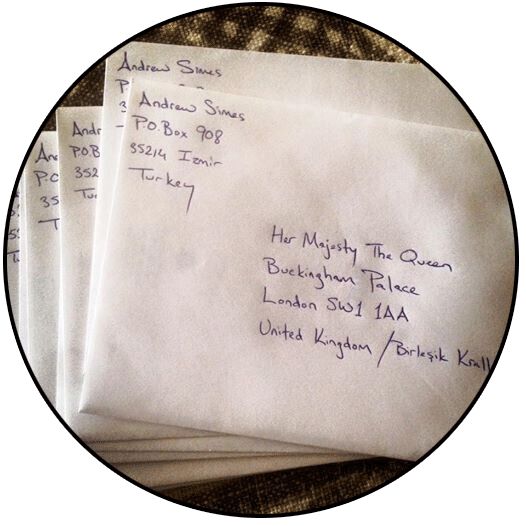 Andrew Simes
Andrew Simes
P.O.Box 908
35214 Izmir
Turkey
Her Majesty The Queen
Buckingham Palace
London SW1 1AA
United Kingdom / Birleşik Krall
Andr
P.O.B
352
Tur
An
P.O
35
T